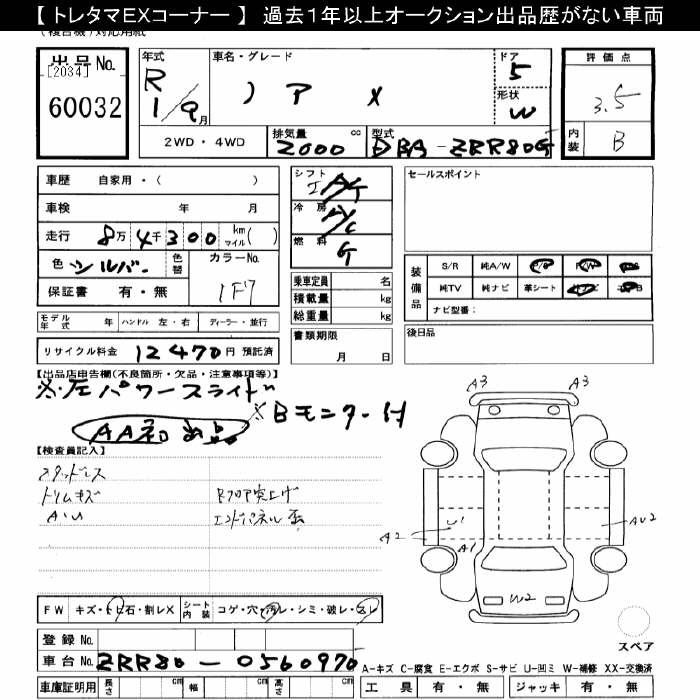 【 トレタマEXコーナー 】 過去1年以上オークション出品歴がない車両
出品 No.
[2034]
60032
年式
R
1/9月
車名・グレード
ノア X
ドア
5
形状
W
評価点
3.5
内装
B
2WD・4WD
排気量 cc
2000
型式
DBA-ZRR80G
車歴 自家用・( )
車検 年 月
走行 8万4千300 km マイル( )
色 シルバー
色替
カラーNo.
1F7
保証書 有・無
モデル年式 年 ハンドル 左・右 ディーラー・並行
リサイクル料金 12470円 預託済
シフト
冷房
A/C
燃料
G
乗車定員 名
積載量 kg
総重量 kg
書類期限
月 日
セールスポイント
装備品
S/R 純A/W P/S P/W
純TV 純ナビ 革シート
ナビ型番:
後日品
【出品店申告欄(不良箇所・欠品・注意事項等)】
※左パワースライド
※Bモニター付
AA初出品
【検査員記入】
スタッドレス
トリムキズ
A・U
Rフロア突上げ
エンドパネル歪
A3
A3
A2
U1
A1
AU2
W2
スペア
FW キズ・トビ石・割レX
シート内装 コゲ・穴・汚レ・シミ・破レ・スレ
登録 No.
車台 No. ZRR80-0560970
車庫証明用 長さ cm 幅 cm 高さ cm
A-キズ C-腐食 E-エクボ S-サビ U-凹ミ W-補修 XX-交換済
工具 有・無 ジャッキ 有・無